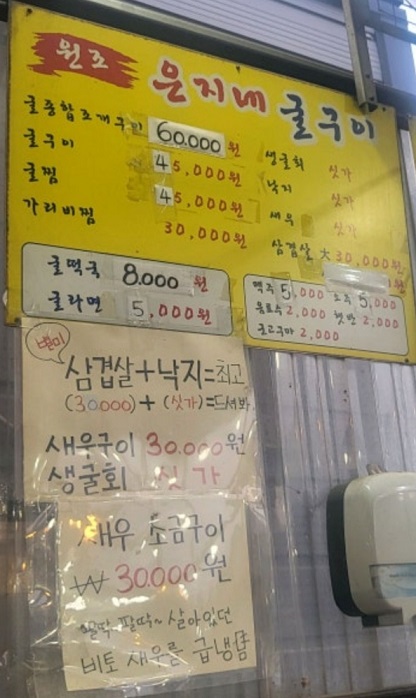 원조 은지네 굴구이
굴종합조개구이 60.000원
굴구이 45,000원
굴찜 45,000원
가리비찜 30,000원
생굴회 싯가
낙지 싯가
새우 싯가
삼겹살 大 30,000원
굴떡국 8.000원
굴라면 5,000원
맥주 5,000 소주 5,000
음료수 2,000 햇반 2,000
군고구마 2,000
별미
삼겹살+낙지=최고
(30.000)+(싯가)=드셔봐
새우구이 30.000원
생굴회 싯가
새우 소금구이
₩ 30.000원
팔딱~ 살아있던
비토 새우를 급냉